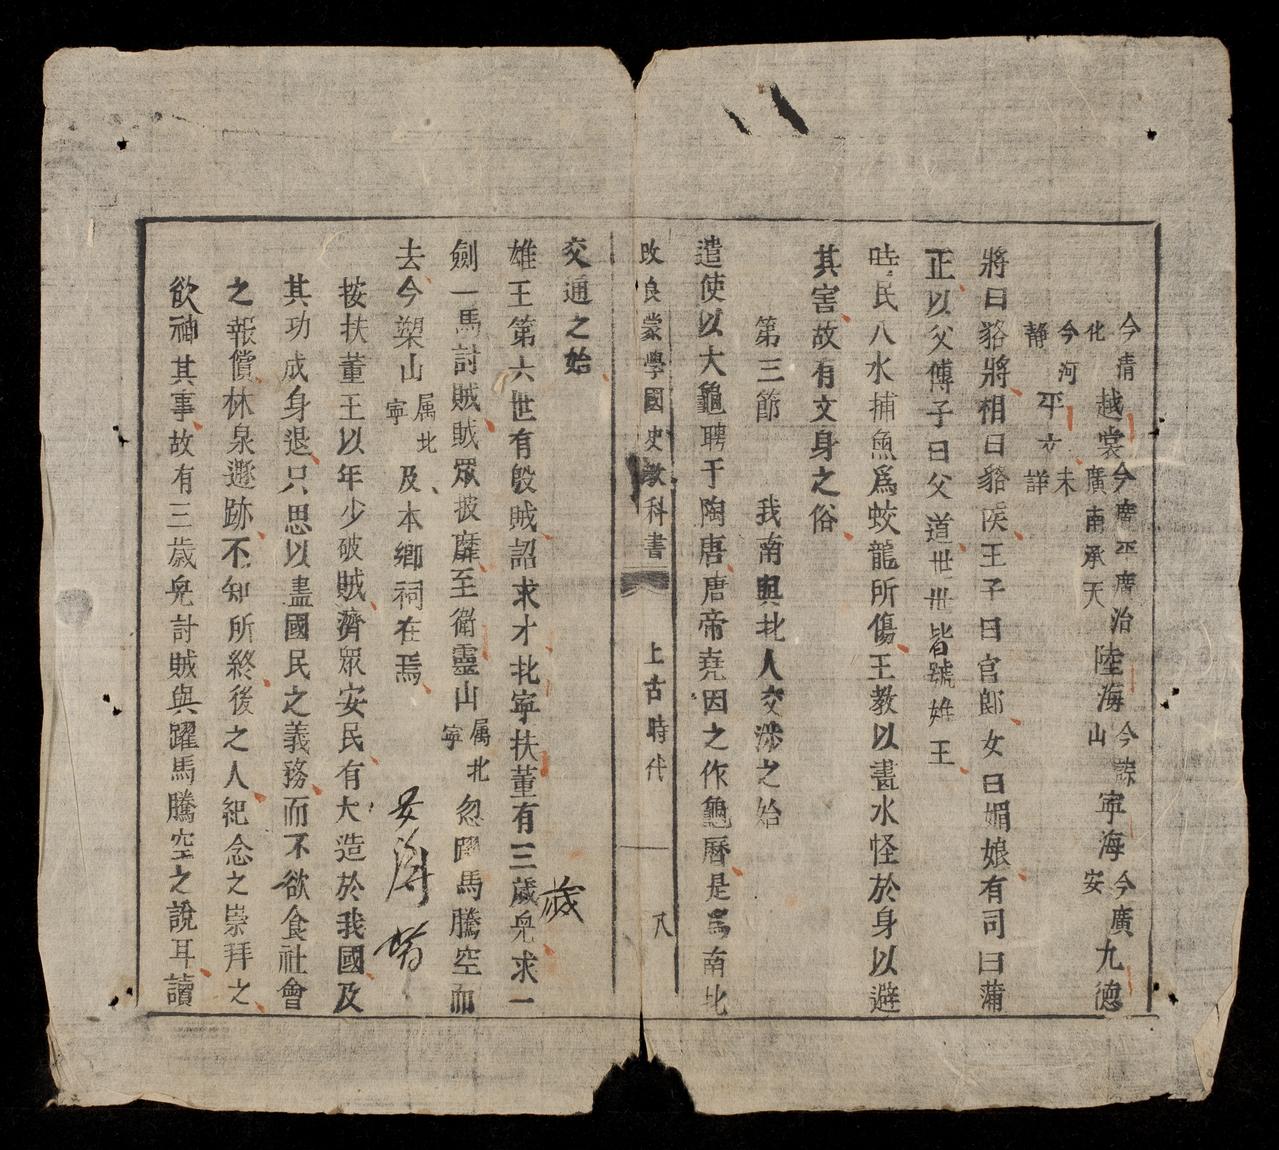 今清化越裳今廣平廣治廣南承天陸海今諒山寧海今廣安九德
今河靜平文未詳
將曰貉將相曰貉侯王子曰官郎女曰媚娘有司曰蒲
正以父傳子曰父道世世皆號雄王
時民入水捕魚爲蛟龍所傷王教以畫水怪於身以避
其害故有文身之俗
第三節 我南與北人交涉之始
遣使以大龜聘于陶唐唐帝堯因之作龜曆是爲南北
改良蒙學國史教科書 上古時代 八
交通之始
雄王第六世有殷賊詔求才北寧扶董有三歲兒求一
歲
劍一馬討賊賊眾披靡至衛靈山属北寧忽躍馬騰空而
去今槊山属北寧及本鄉祠在焉
按扶董王以年少破賊濟眾安民有大造於我國及
其功成身退只思以盡國民之義務而不欲食社會
之報償林泉遯跡不知所終後之人紀念之崇拜之
欲神其事故有三歲兒討賊與躍馬騰空之說耳讀